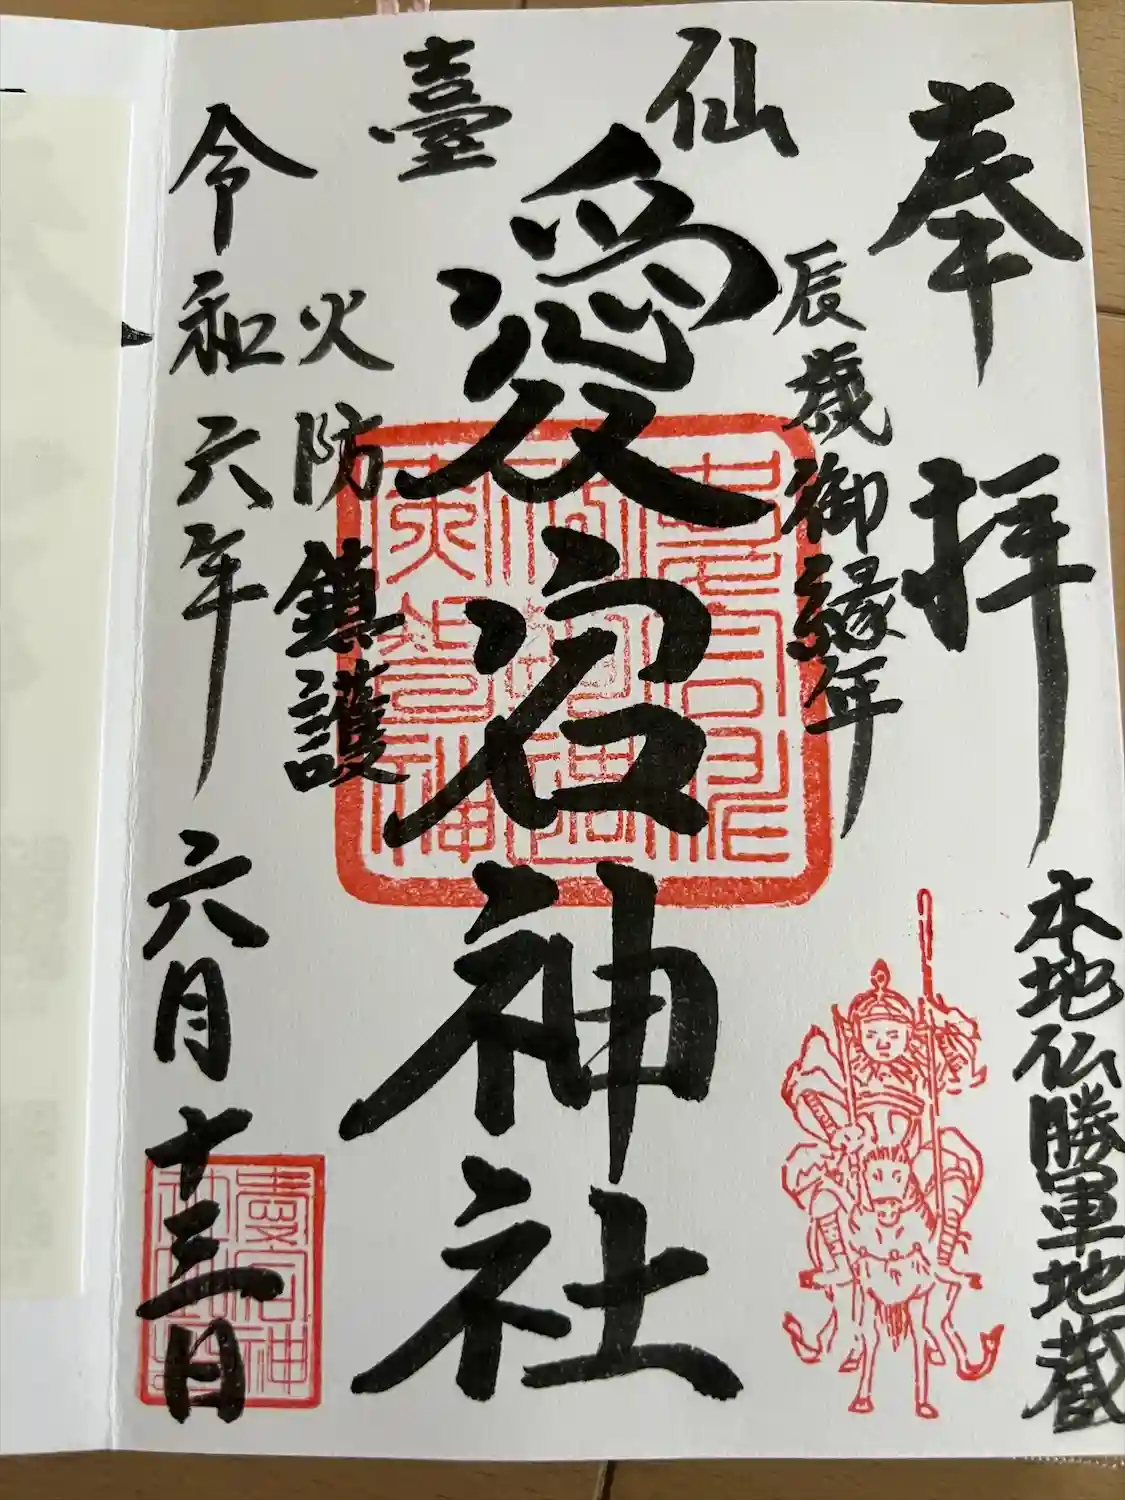 奉拝
本地仏勝軍地蔵
辰歳御縁年
仙臺
愛宕神社
火防鎮護
令和六年六月十三日